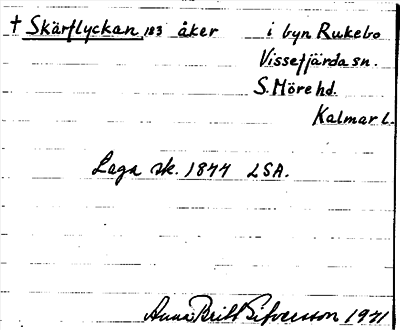 † Skärflyckan, 183 åker i byn Rukebo
Vissefjärda sn.
S. Möre hd.
Kalmar l.
Laga sk. 1877 LSA.
Anna Britt Sifversson 1971